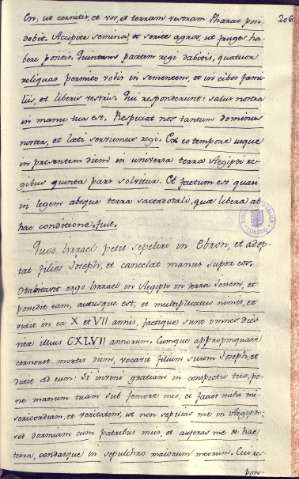 206
En, ut cernitis, et vos, et terram vestram Pharao pos-
sidebit. Accipite semina, et serite agros, ut fruges ha-
bere possitis. Quintam partem regi dabitis, quatuor
reliquas permitto vobis in sementem, et in cibos fami-
liis, et liberis vestris. Qui responderunt: salus nostra
in manu tua est. Respiciat nos tantum dominus
noster, et laeti serviemus regi. Ex eo tempore usque
in presentem diem in universa terra Aegipti re-
gibus quinta pars solvitur. Et factum est quasi
in legem absque terra sacerdotali, quae libera ab
hac conditione fuit.
Quod Israel petit sepelire in Ebron, et adop-
tat filios Joseph, et cancelat manus supra eos.
Habitavit ergo Israel in Aegipto in terra Jessen, et
possedit eam, auctusque est, et multiplicatus nimis, et
vixit in ea X et VII annis, factique sunt omnes dies
vitae illius CXLVII annorum. Cumque appropinquare
cerneret mortis diem, vocavit filium suum Joseph, et
dixit ad eum: Si inveni gratiam in conspectu tuo, po-
ne manum tuam sub femore meo, et facies mihi mi-
sericordiam, et veritatem, ut non sepelias me in Aegipto;
set dormiam cum patribus meis, et auferas me de hac
terra, condasque in sepulchro maiorum meorum. Cui res-
pon-